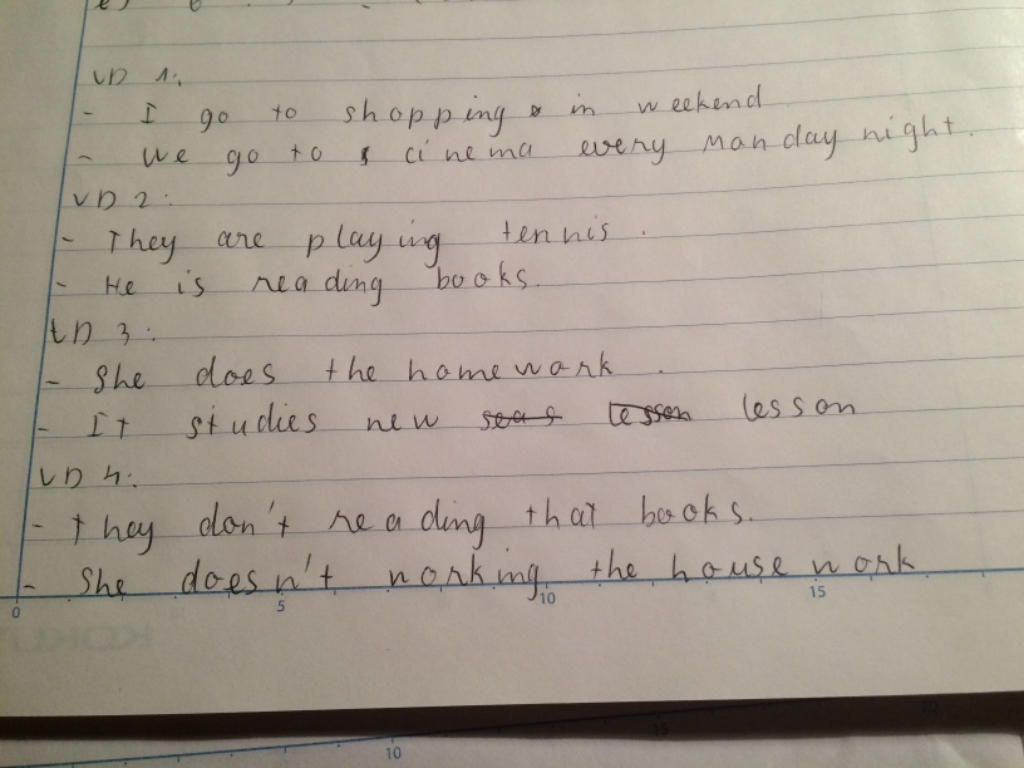 VD 1:
- I go to shopping in weekend
- We go to cinema every Manday night.
VD 2:
- They are playing tennis.
- He is reading books.
VD 3:
- She does the homework.
- It studies new seas lesson lesson
VD 4:
- They don't reading that books.
- She doesn't working the housework
0 5 10 15
10 15 20